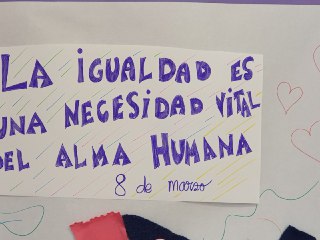 LA IGUALDAD ES
UNA NECESIDAD VITAL
DEL ALMA HUMANA
8 de marzo